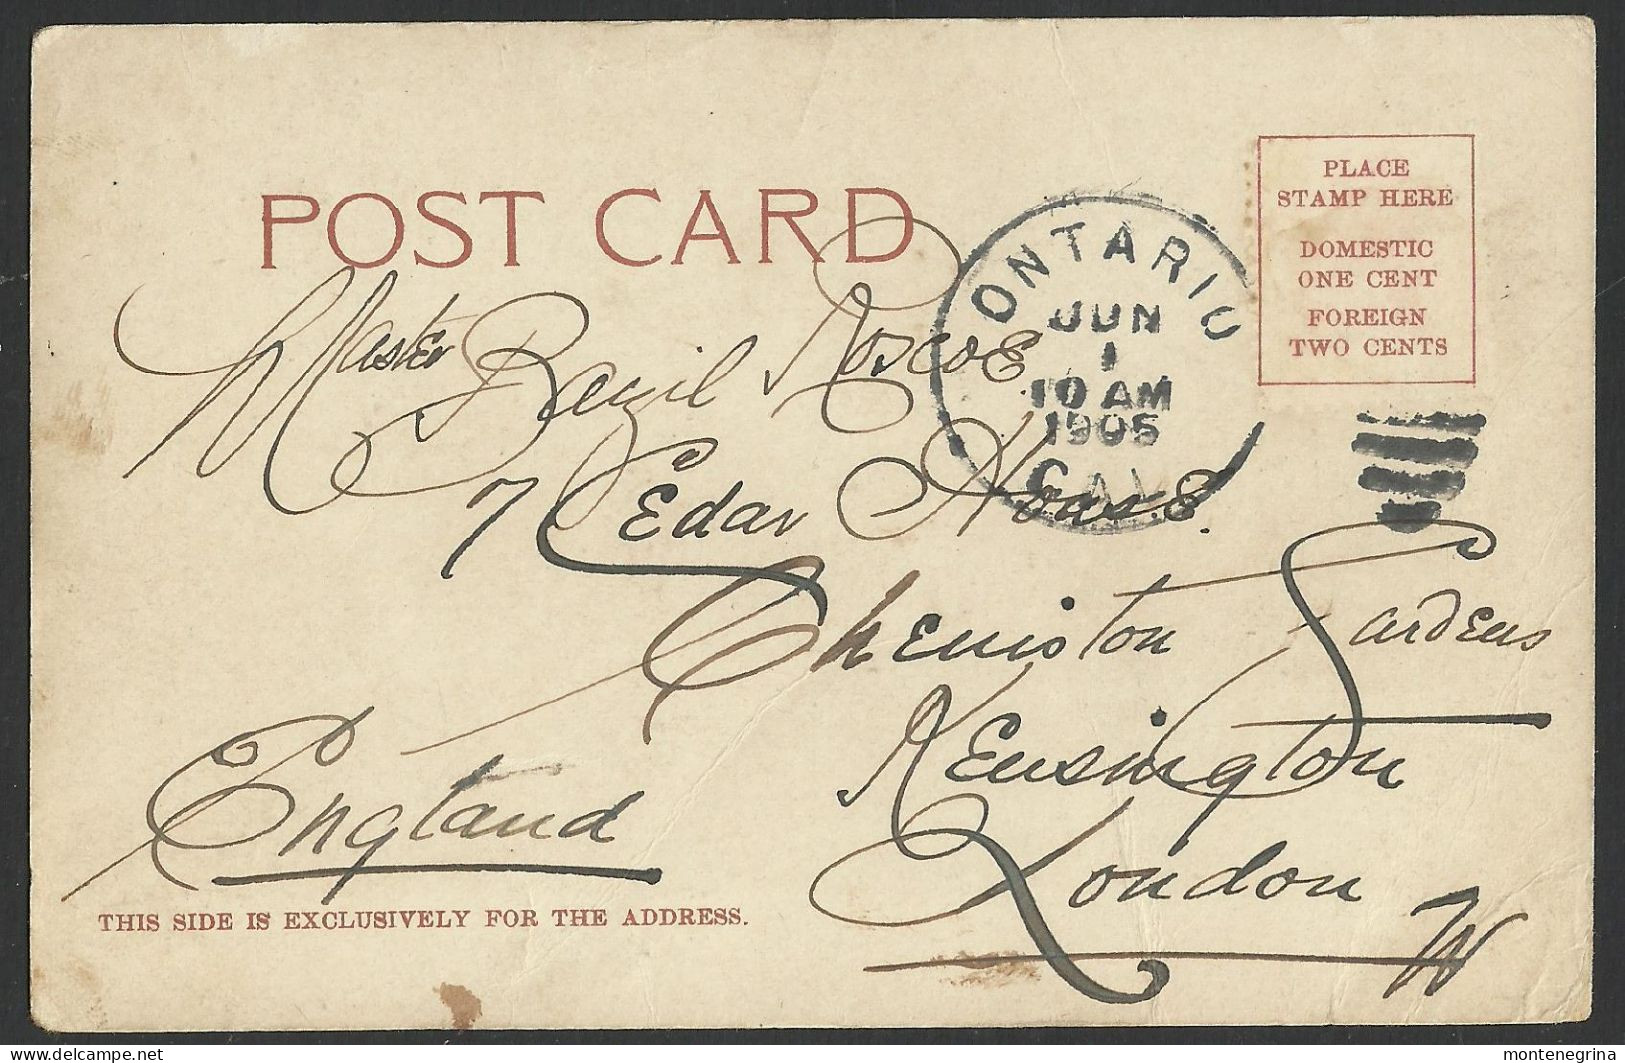 POST CARD
PLACE
STAMP HERE
DOMESTIC
ONE CENT
FOREIGN
TWO CENTS
ONTARIO
JUN
1
10 AM
1905
CAL
Master Bazil Roscoe
7 Cedar House.
Cheniston Gardens
Kensington
London
W
England
THIS SIDE IS EXCLUSIVELY FOR THE ADDRESS.
montenegrina